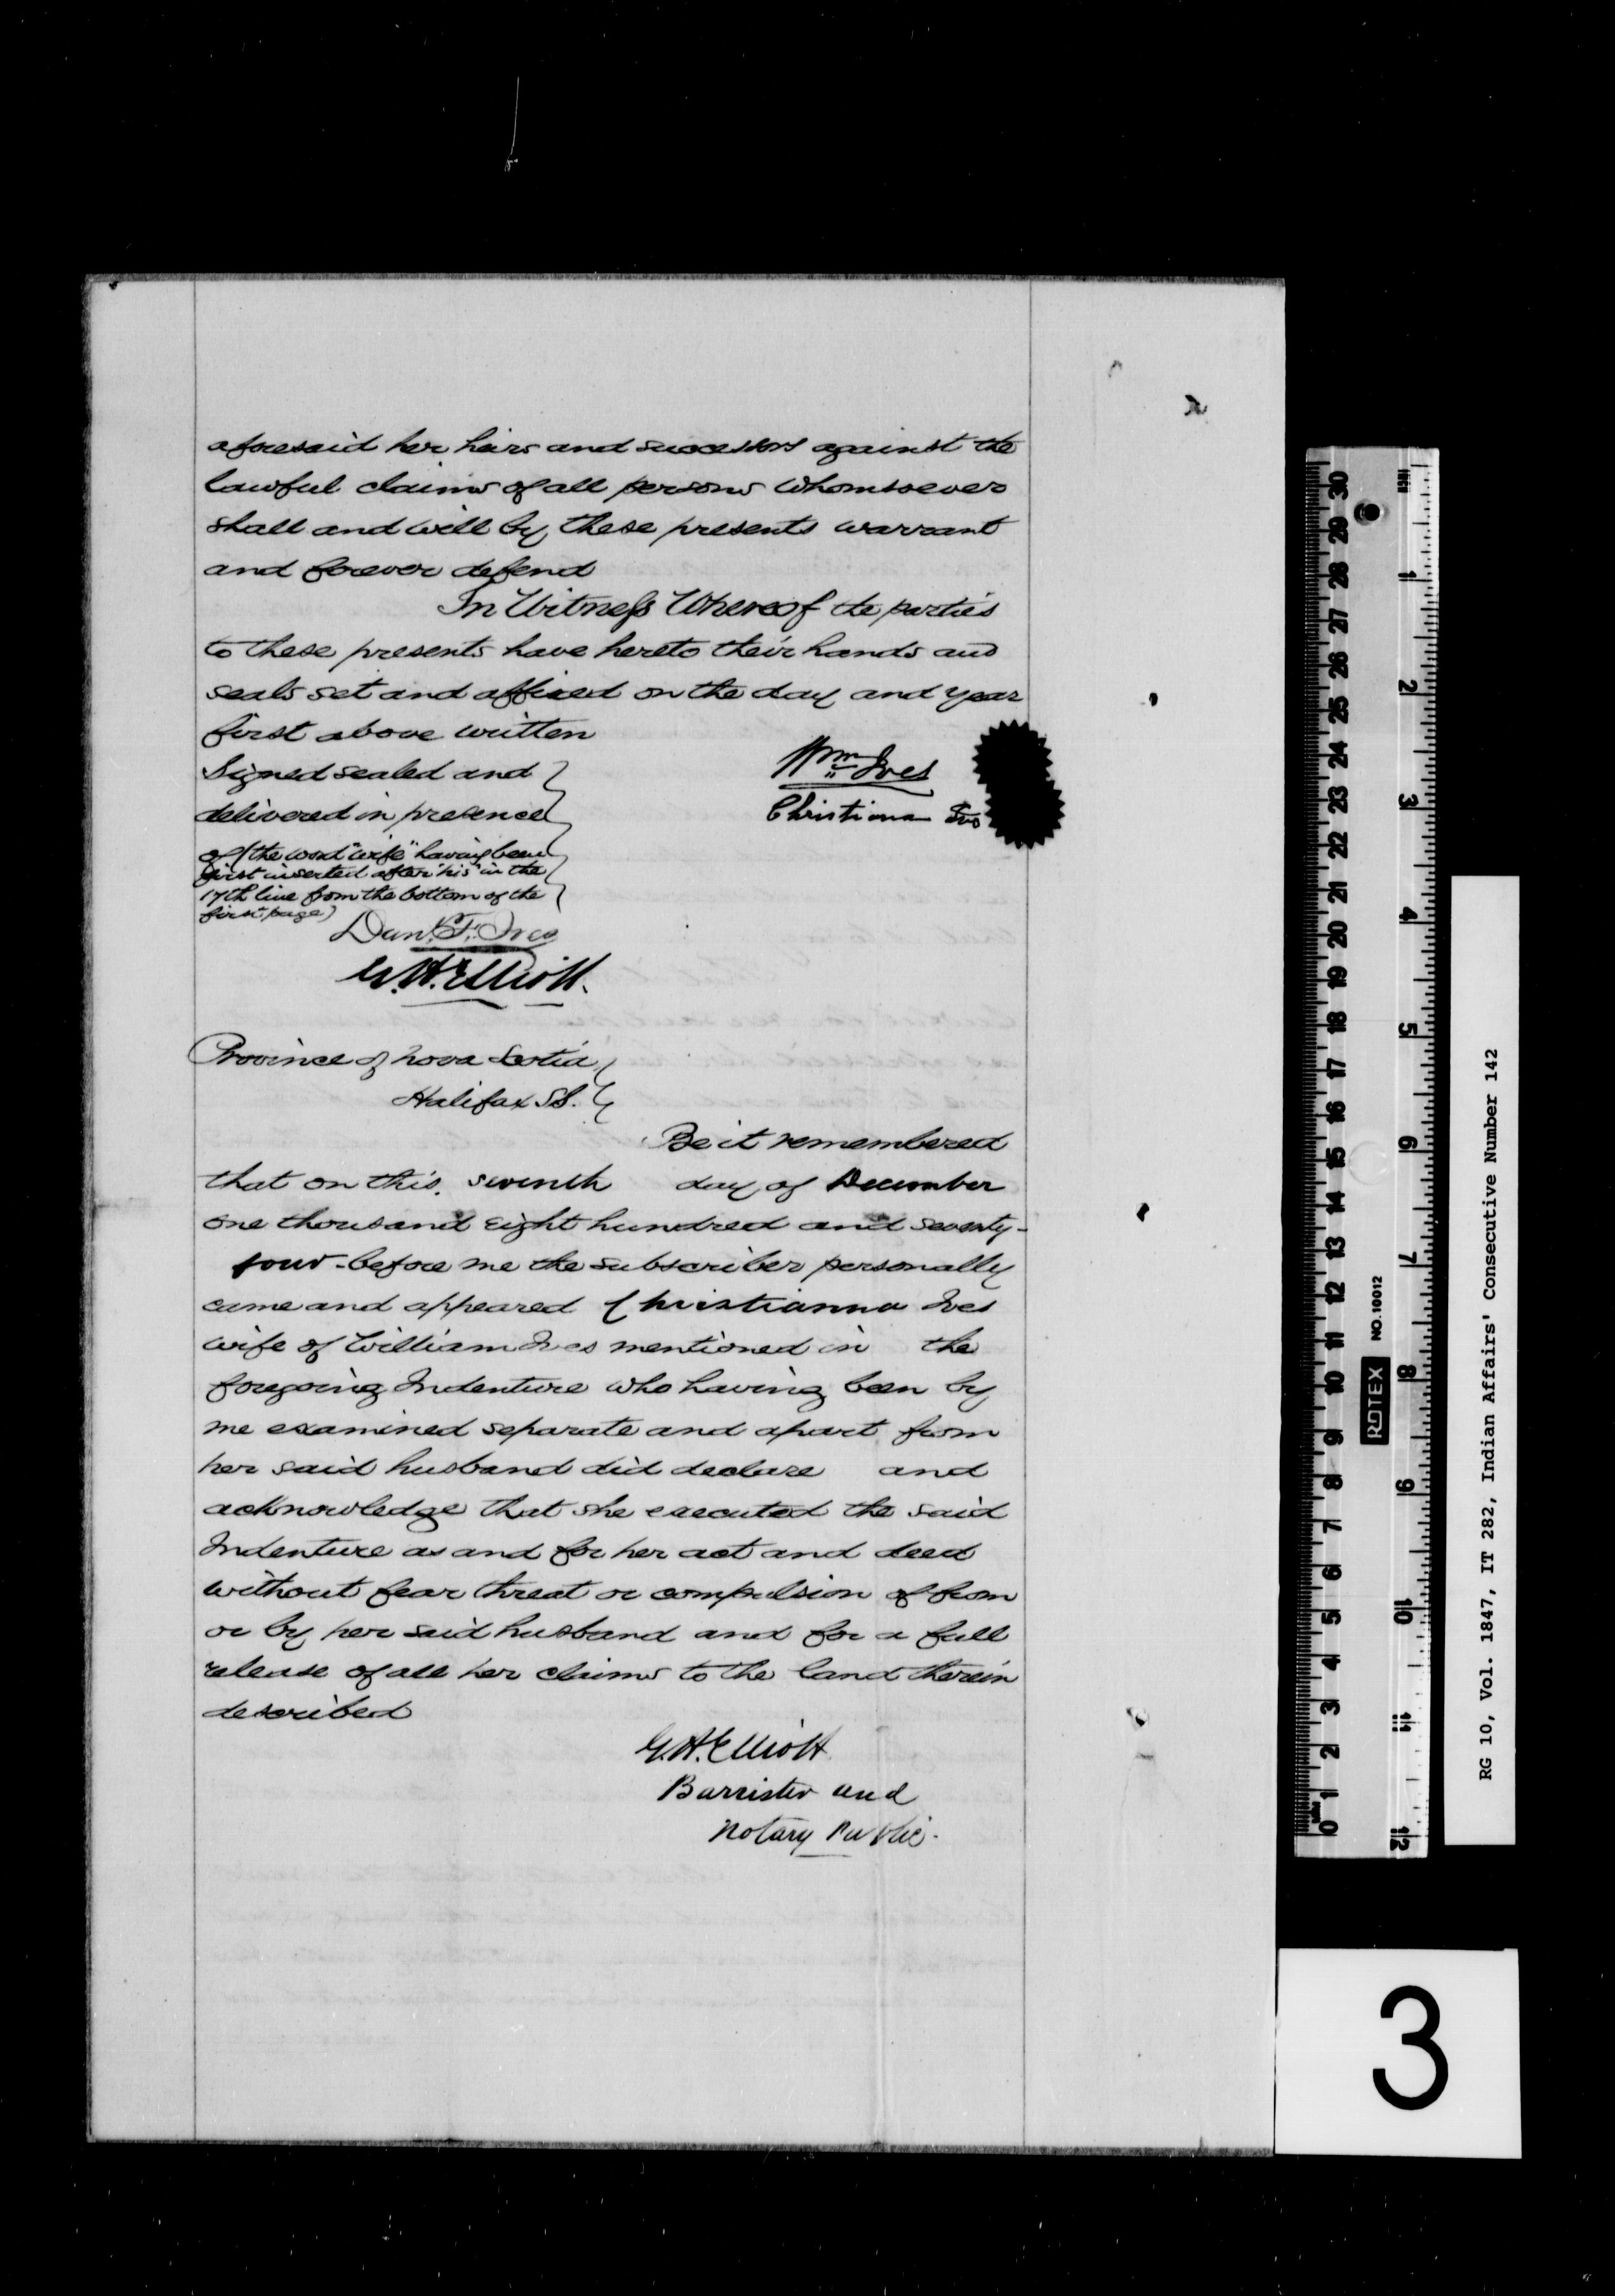 aforesaid her heirs and successors against the
lawful claims of all persons whomsoever
shall and will by these presents warrant
and forever defend
In Witness Whereof the parties
to these presents have hereto their hands and
seals set and affixed on the day and year
first above written
Signed sealed and
delivered in presence
of (the word "wife" having been
first inserted after "his" in the
17th line from the bottom of the
first page)
Wm Ives
Christiana Ives
Danl. F. Ives
G. H. Elliott.
Province of Nova Scotia
Halifax SS.
Be it remembered
that on this seventh day of December
one thousand eight hundred and seventy-
four - before me the subscriber personally
came and appeared Christianna Ives
wife of William Ives mentioned in the
foregoing Indenture who having been by
me examined separate and apart from
her said husband did declare and
acknowledge that she executed the said
Indenture as and for her act and deed
without fear threat or compulsion of from
or by her said husband and for a full
release of all her claims to the land therein
described
G. H. Elliott
Barrister and
Notary Public.
RG 10, Vol. 1847, IT 282, Indian Affairs' Consecutive Number 142
ROTEX NO. 10012
3